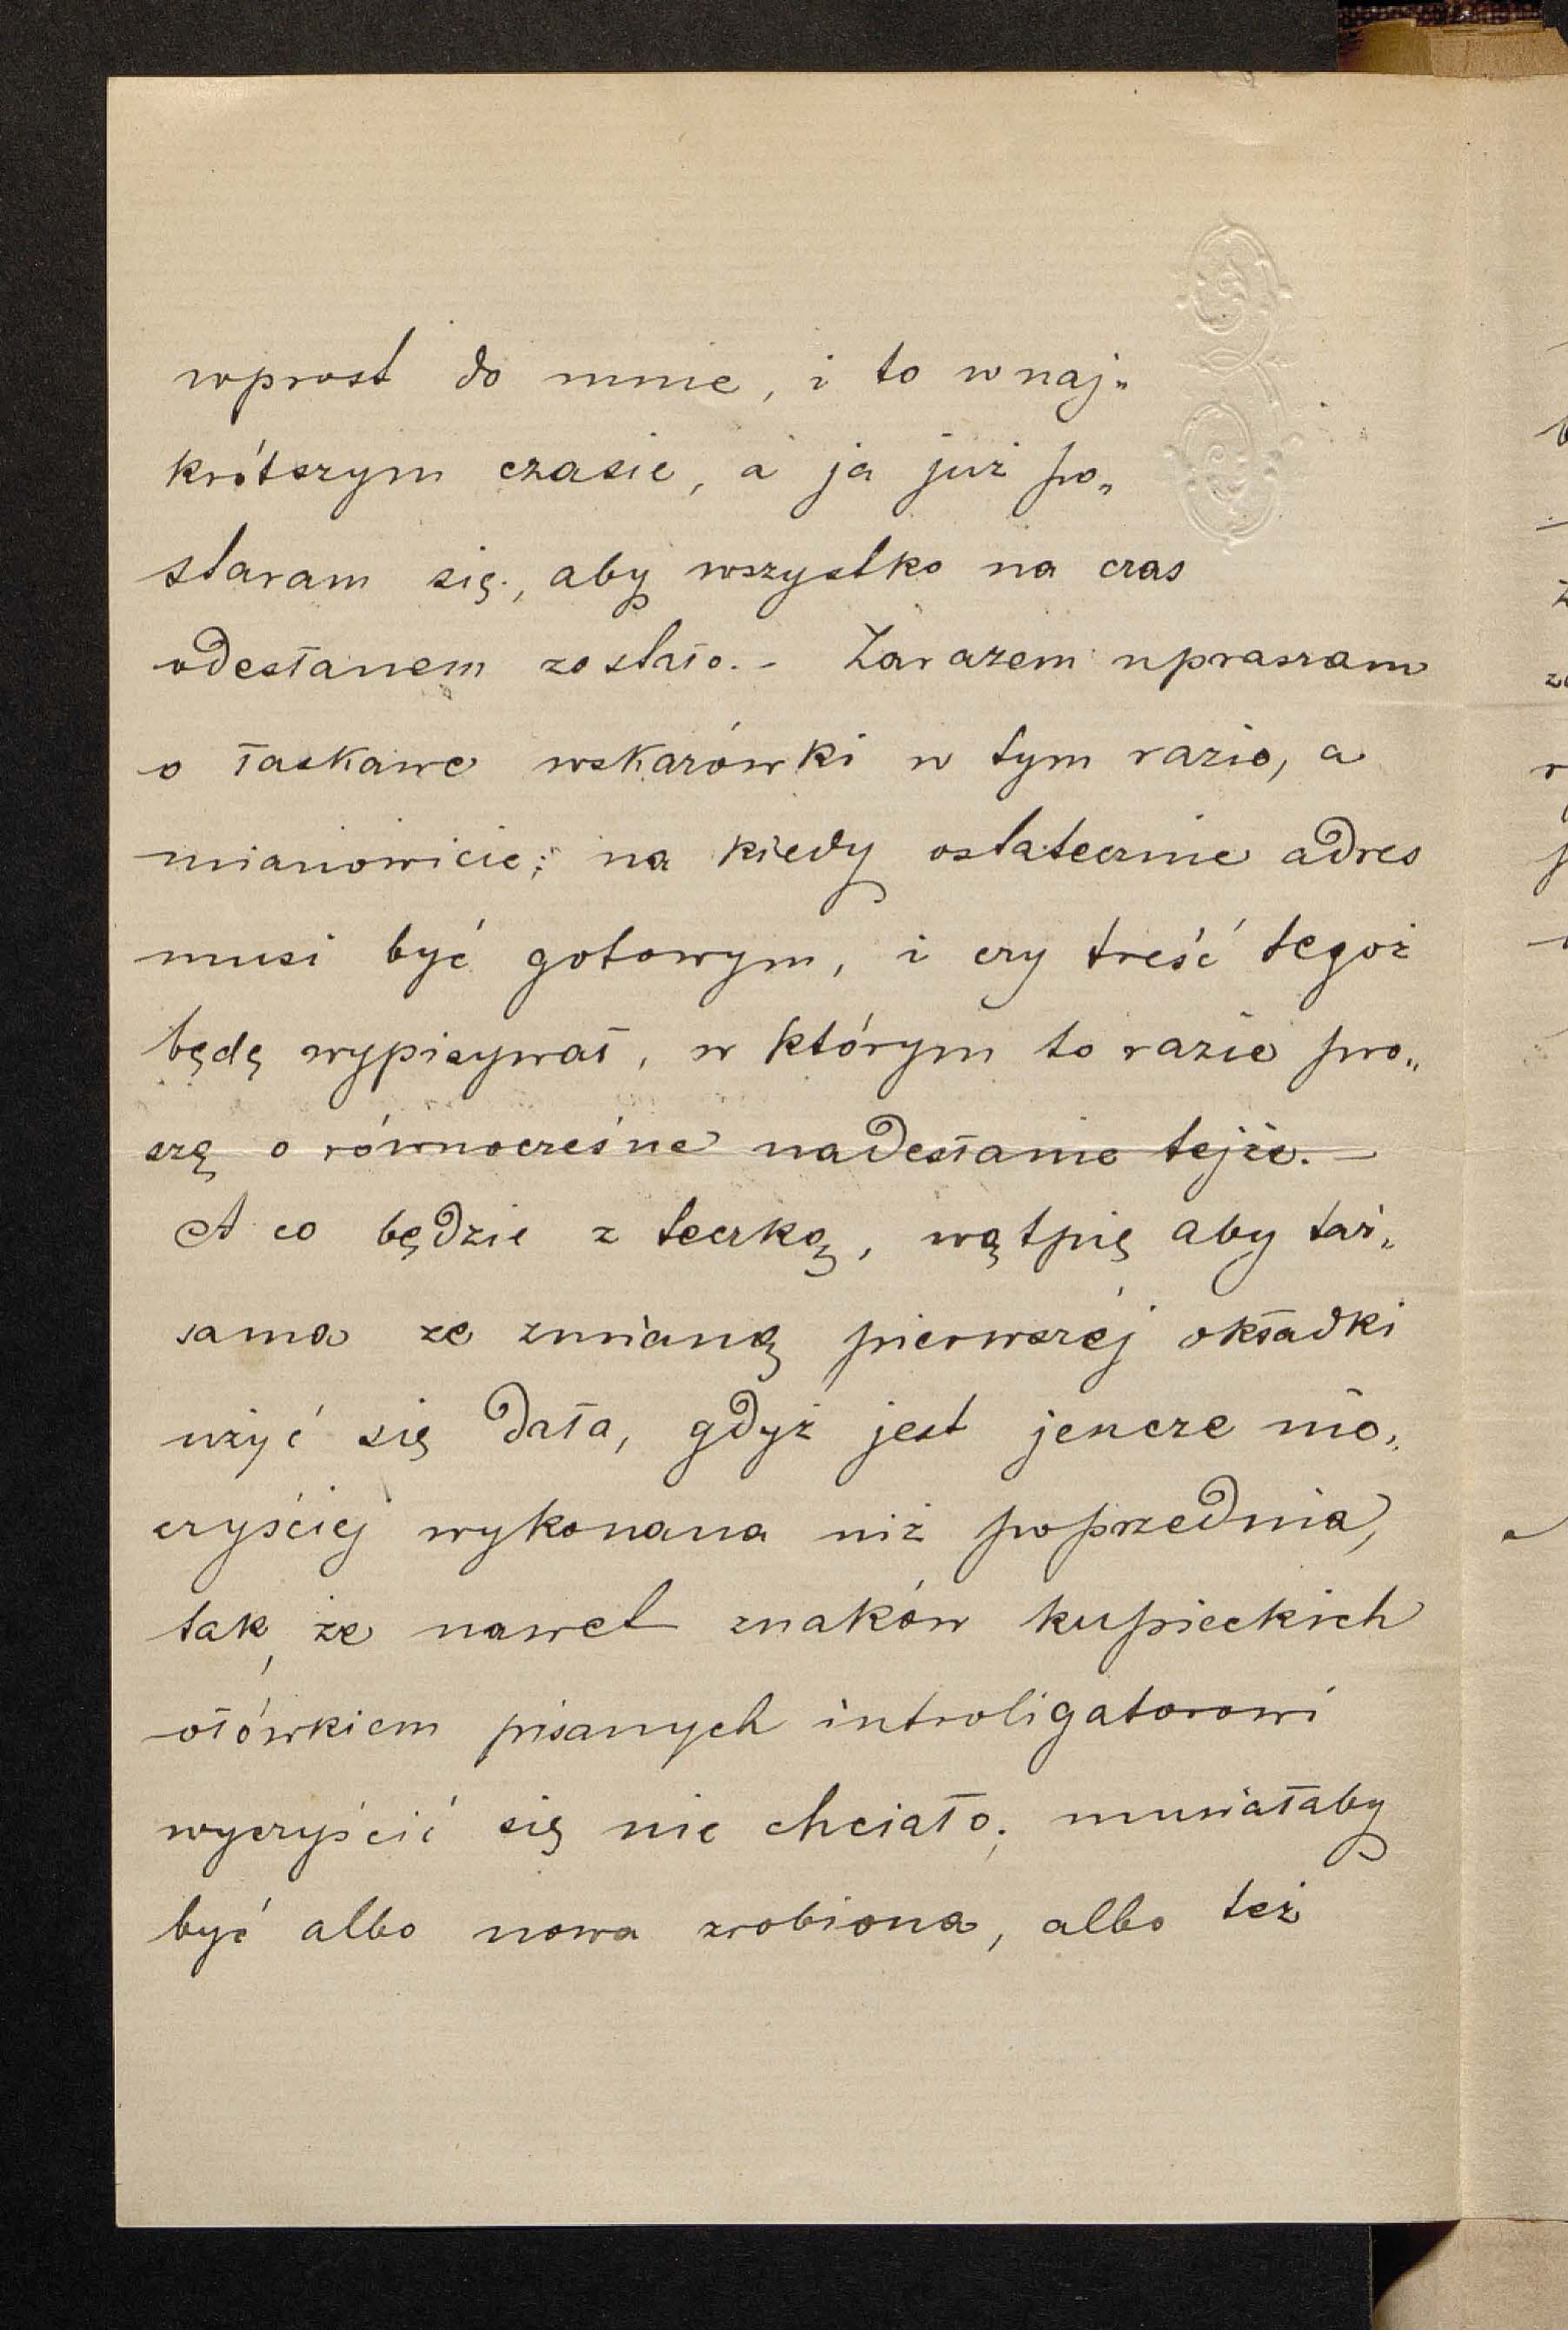 wprost do mnie, i to w naj„
krótszym czasie, a ja już po„
staram się, aby wszystko na czas
odesłanem zostało. - Zarazem upraszam
o łaskawe wskazówki w tym razie, a
mianowicie; na kiedy ostatecznie adres
musi być gotowym, i czy treść tegoż
będę wypisywał, w którym to razie pro„
szę o równocześne nadesłanie tejże. —
A co będzie z teczką, wątpię aby taż„
sama ze zmianą pierwszéj okładki
użyć się dała, gdyż jest jeszcze nie„
czyściej wykonana niż poprzednia,
tak, że nawet znaków kupieckich
ołówkiem pisanych introligatorowi
wyczyścić się nie chciało; musiałaby
być albo nowa zrobiona, albo też